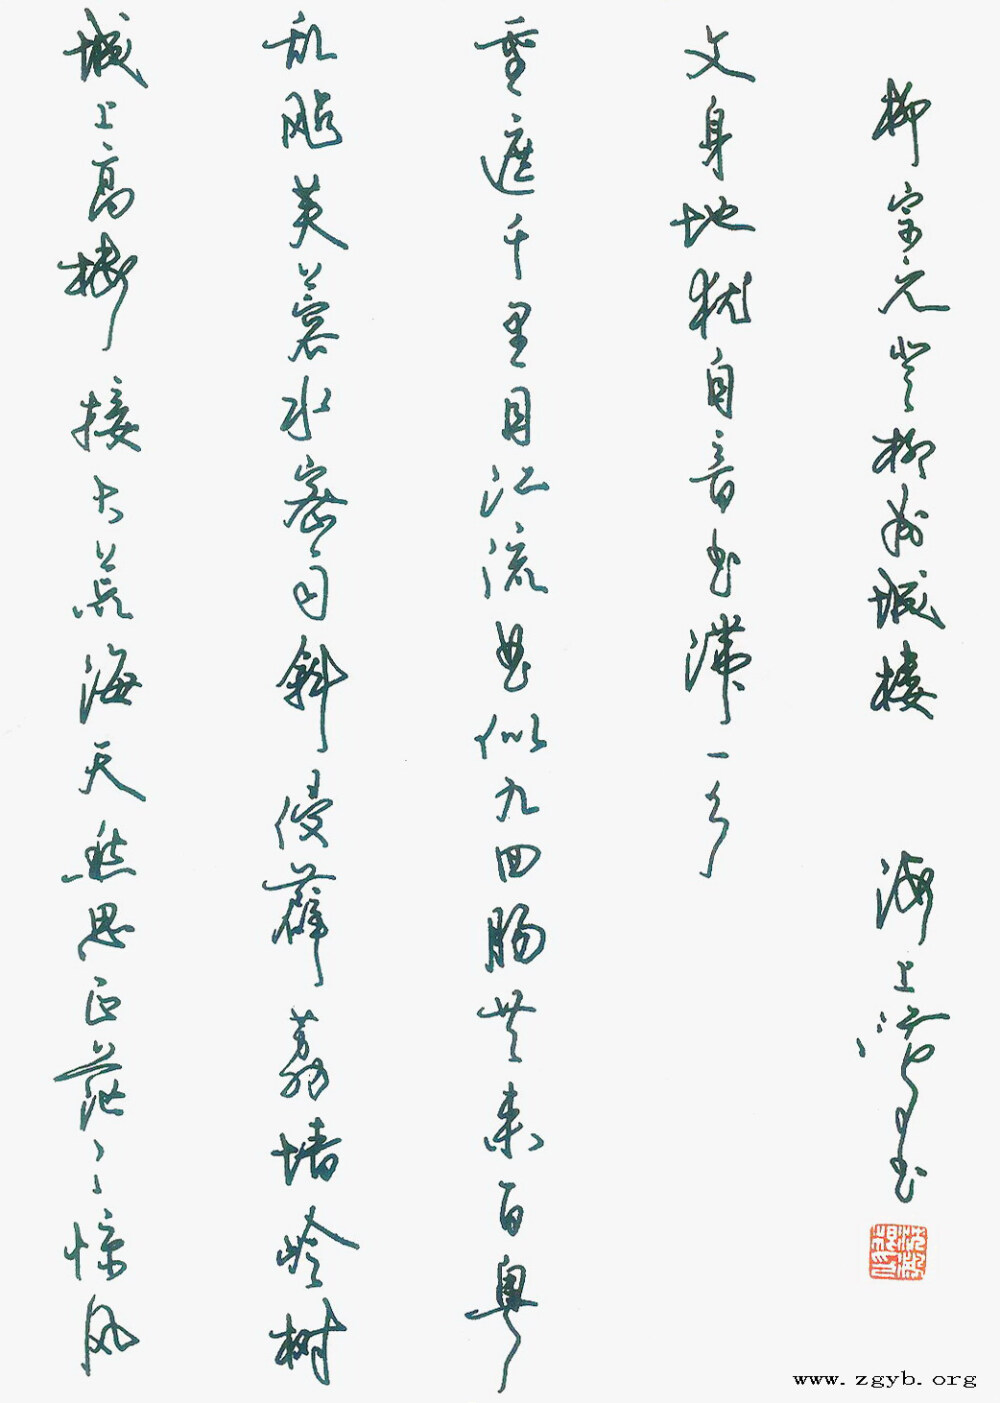 城上高楼接大荒海天愁思正茫々惊风
乱飐芙蓉水密雨斜侵薜荔墙岭树
重遮千里目江流曲似九回肠共来百粤
文身地犹自音书滞一乡
柳宗元登柳州城楼 海上书
www.zgyb.org